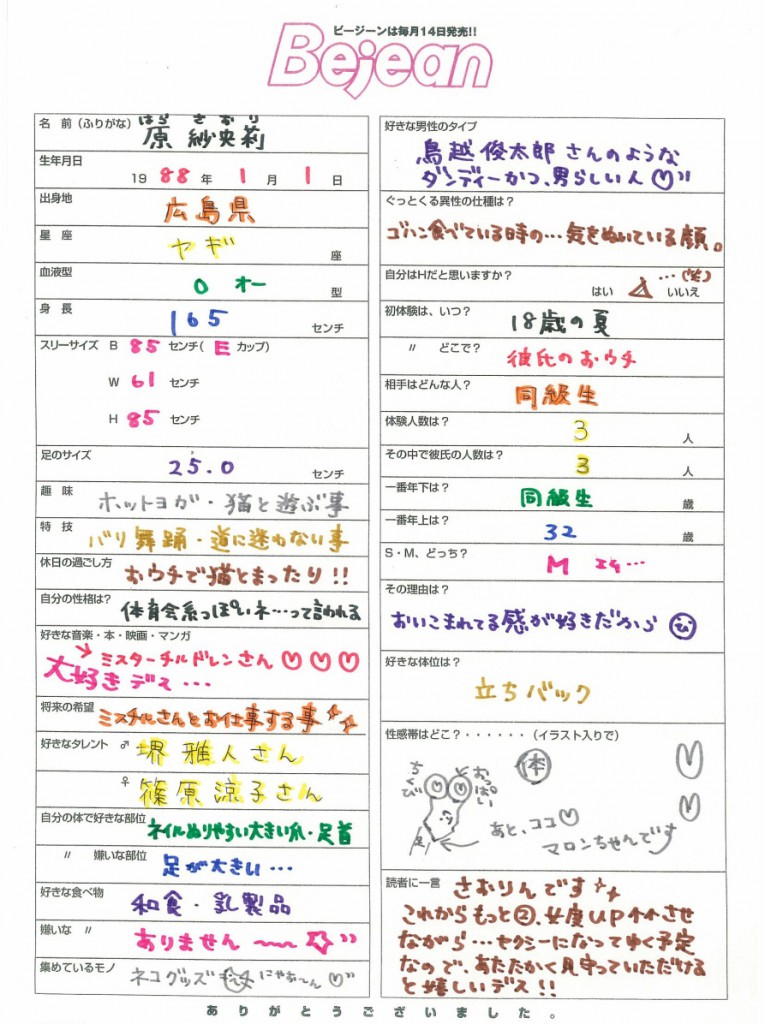 ビージーンは毎月14日発売!!
Bejean
名 前(ふりがな) はら さおり
原 紗央莉
生年月日
1988年 1月 1日
出身地
広島県
星 座
ヤギ 座
血液型
O オー 型
身 長
165 センチ
スリーサイズ B 85 センチ( E カップ)
W 61 センチ
H 85 センチ
足のサイズ
25.0 センチ
趣 味
ホットヨガ・猫と遊ぶ事
特 技
バリ舞踊・道に迷わない事
休日の過ごし方
おウチで猫とまったり!!
自分の性格は?
体育会系っぽいネ…って言われる
好きな音楽・本・映画・マンガ
ミスターチルドレンさん♡♡♡
大好きデス…
将来の希望
ミスチルさんとお仕事する事☆☆
好きなタレント ♂ 堺 雅人さん
♀ 篠原 涼子さん
自分の体で好きな部位
ネイルぬりやすい大きい爪・足首
〃 嫌いな部位
足が大きい…
好きな食べ物
和食・乳製品
嫌いな 〃
ありません〜☆
集めているモノ
ネコグッズ にゃお〜ん♡
好きな男性のタイプ
鳥越俊太郎さんのような
ダンディーかつ、男らしい人♡
ぐっとくる異性の仕種は?
ゴハン食べている時の…気をぬいている顔。
自分はHだと思いますか?
…(笑)
はい △ いいえ
初体験は、いつ?
18歳の夏
〃 どこで?
彼氏のおウチ
相手はどんな人?
同級生
体験人数は?
3 人
その中で彼氏の人数は?
3 人
一番年下は?
同級生 歳
一番年上は?
32 歳
S・M、どっち?
M
その理由は?
おいこまれてる感が好きだから
好きな体位は?
立ちバック
性感帯はどこ?・・・・・・(イラスト入りで)
ちくび
おっぱい
体
足
あと、ココ♡
マロンちゃんです
読者に一言
さおりんです☆
これからもっと②、女度UP↑↑させ
ながら…セクシーになってゆく予定
なので、あたたかく見守っていただける
と嬉しいデス!!
ありがとうございました。